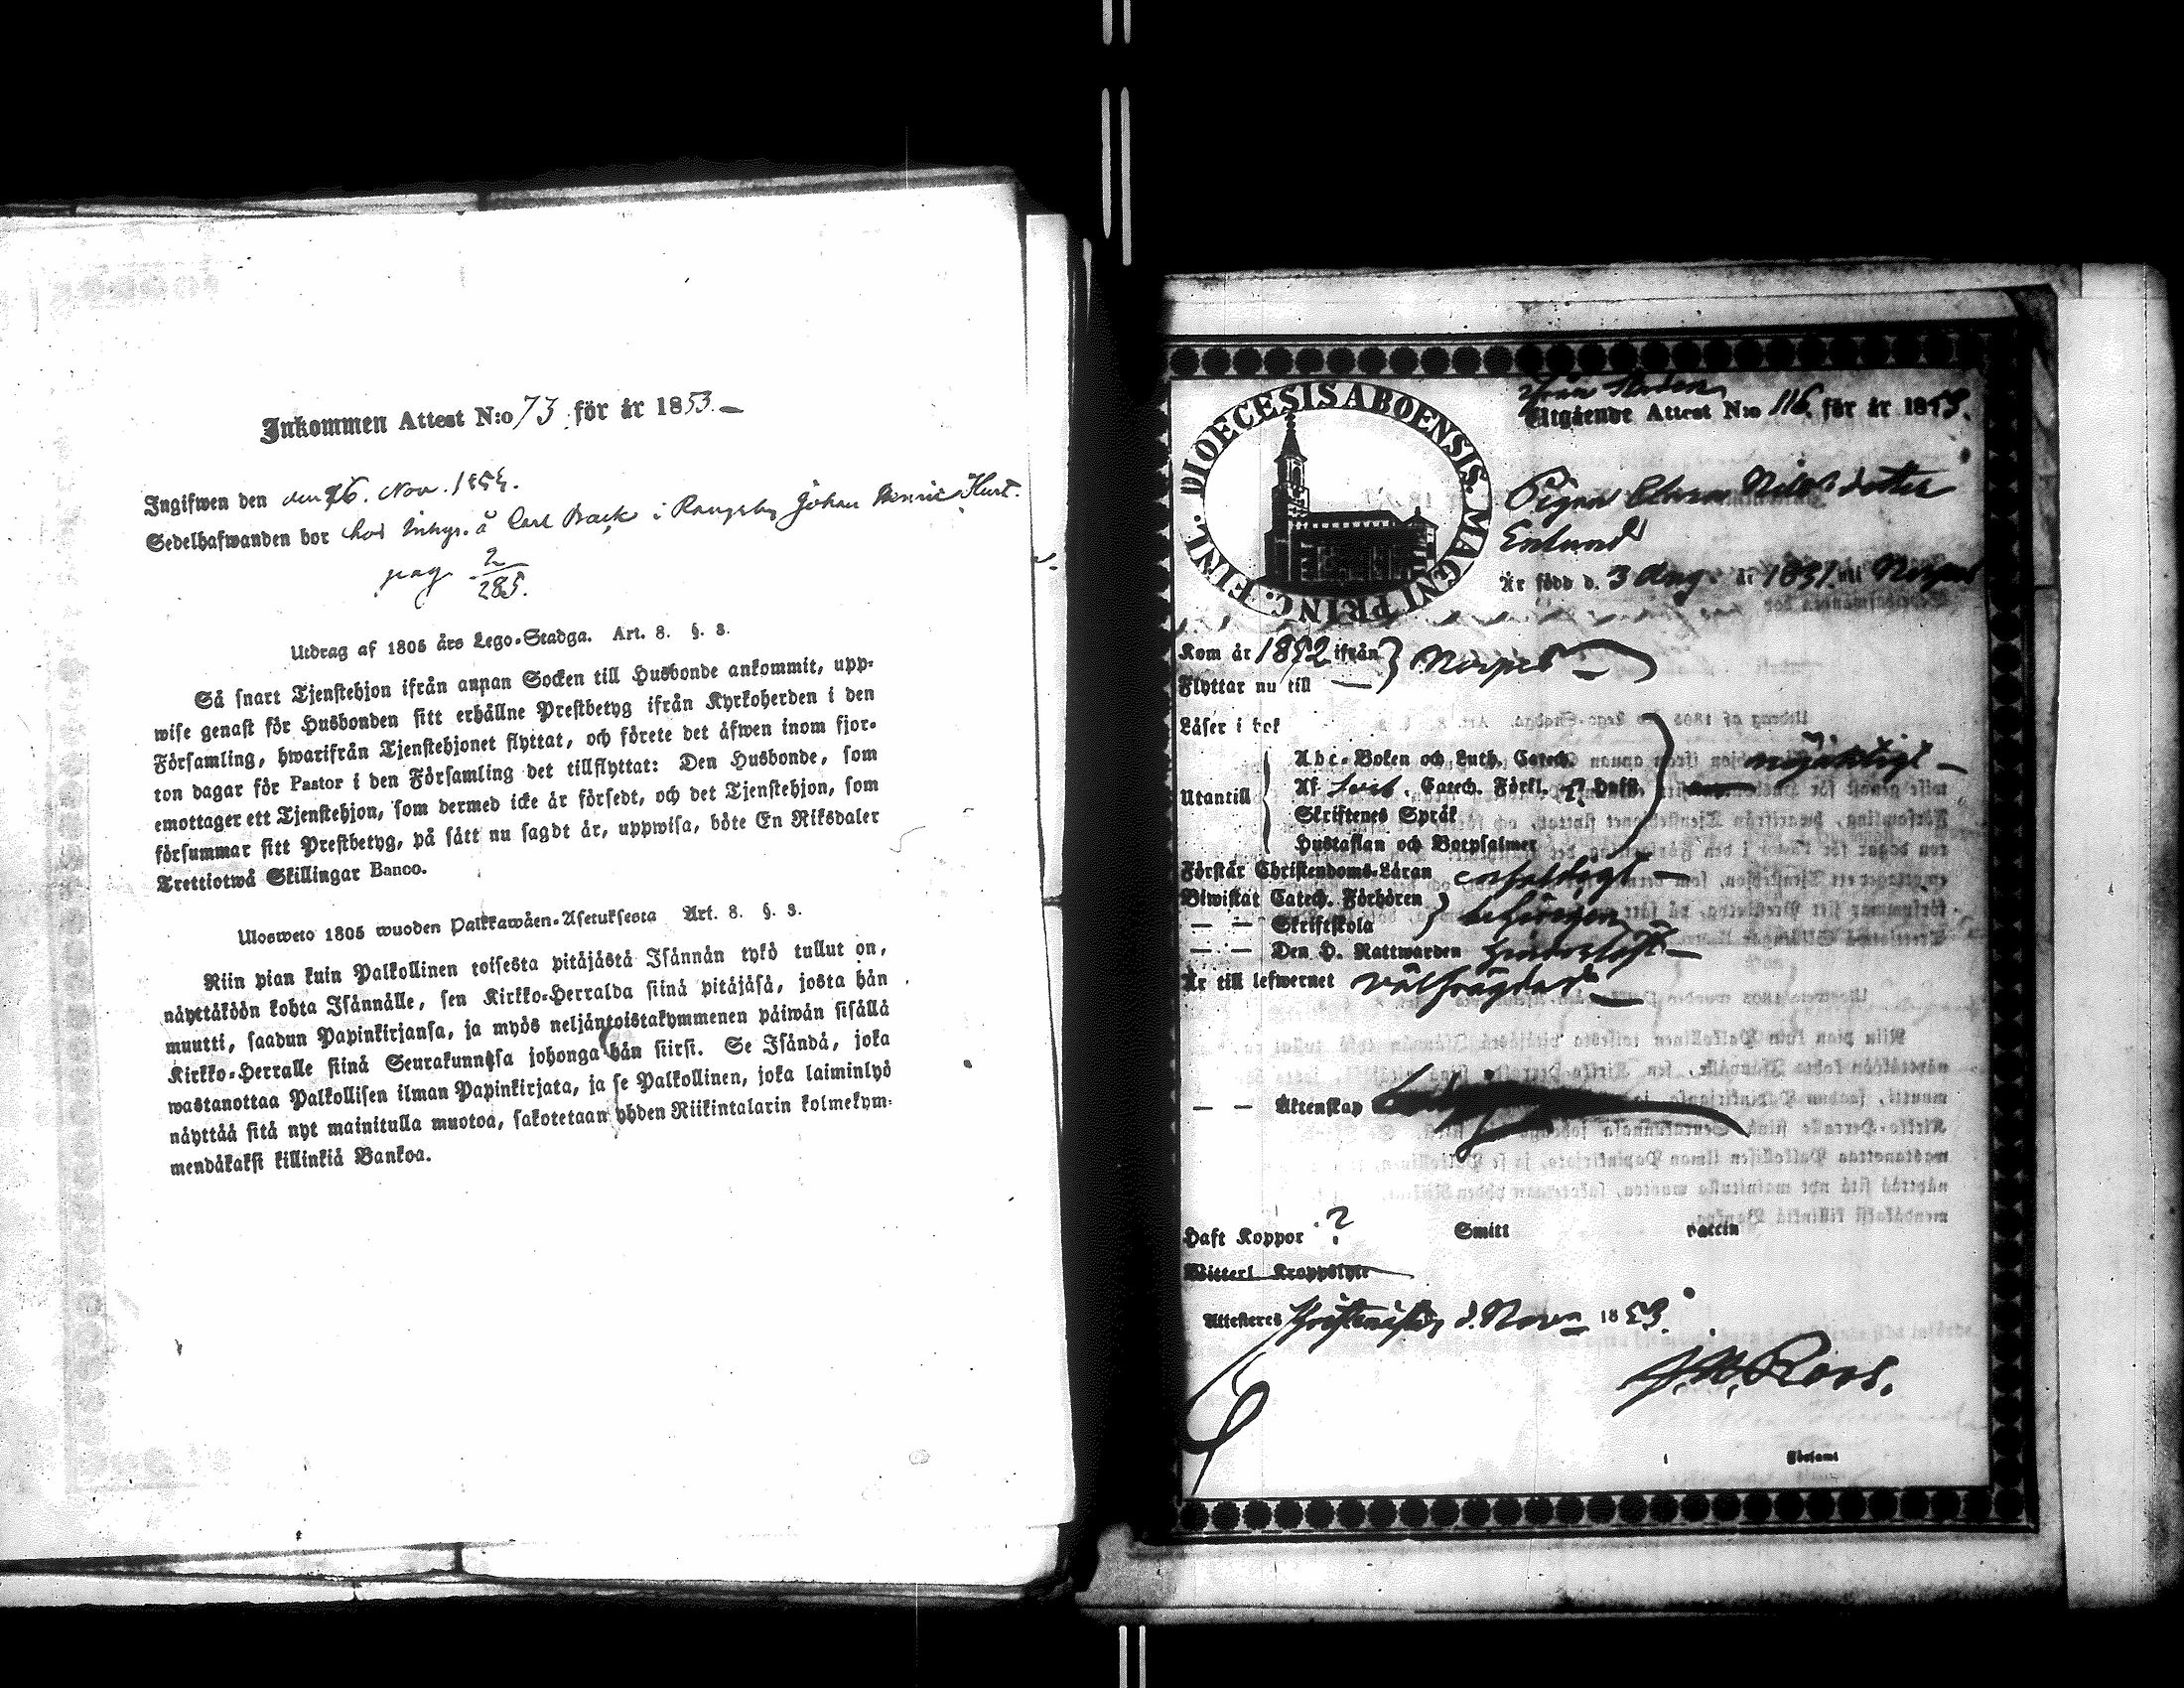 Inkommen Attest N:o 73. för år 1853.—
Ingifwen den den 26. Nov. 1853.
Sedelhafwanden bor hos Inhys. å Carl Back i Rangsby Johan Henric
pag. 2/285.
Utdrag af 1805 års Lego-Stadga. Art. 8. §. 3.
Så snart Tjenstehjon ifrån annan Socken till Husbonde ankommit, upp-
wise genast för Husbonden sitt erhållne Prestbetyg ifrån Kyrkoherden i den
Församling, hwarifrån Tjenstehjonet flyttat, och förete det äfwen inom fjor-
ton dagar för Pastor i den Församling det tillflyttat: Den Husbonde, som
emottager ett Tjenstehjon, som dermed icke är försedt, och det Tjenstehjon, som
försummar sitt Prestbetyg, på sätt nu sagdt är, uppwisa, böte En Riksdaler
Trettiotwå Skillingar Banco.
Ulosweto 1805 wuoden Palkkawäen-Asetuksesta Art. 8. §. 3.
Niin pian kuin Palkollinen toisesta pitäjästä Isännän tykö tullut on,
näyttäköön kohta Isännälle, sen Kirkko-Herralda siinä pitäjäsä, josta hän
muutti, saadun Papinkirjansa, ja myös neljäntoistakymmenen päiwän sisällä
Kirkko-Herralle siinä Seurakunnasa johonga hän siirsi. Se Isändä, joka
wastanottaa Palkollisen ilman Papinkirjata, ja se Palkollinen, joka laiminlyö
näyttää sitä nyt mainitulla muotoa, sakotetaan yhden Riikintalarin kolmekym-
mendäkaksi killinkiä Bankoa.
DIOECESIS ABOENSIS. MAGNI PRINC. FINL.
Från Staden
Utgående Attest N:o 116. för år 1853.
Pigan Nilsdotter
Enlund
Är född d. 3 Aug. år 1831. uti Nerpes
Kom år 1852 ifrån } Nerpes —
Flyttar nu till —
Läser i bok
Utantill
Abc-Boken och Luth. Catech.
Af Catech. Förkl. Hufst.
Skriftenes Språk
Hustaflan och Botpsalmer
nöjaktigt —
Förstår Christendoms-Läran enfaldigt —
Biwistat Catech. Förhören
— — Skriftskola
— — Den H. Nattwarden
Är till lefwernet välfrägdad —
— — Äktenskap
Haft Koppor ? Smitt vaccin
Witterl. Kroppslyte
Attesteras Christinestad d. Novem 1853.
J. M. Roos.
Församl